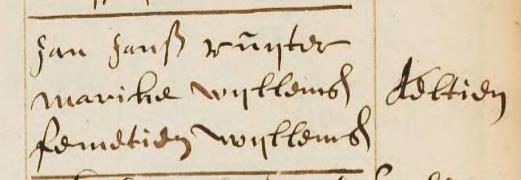 Jan Janß ruijter
marike wyllems
femetien wyllems
Aeltien